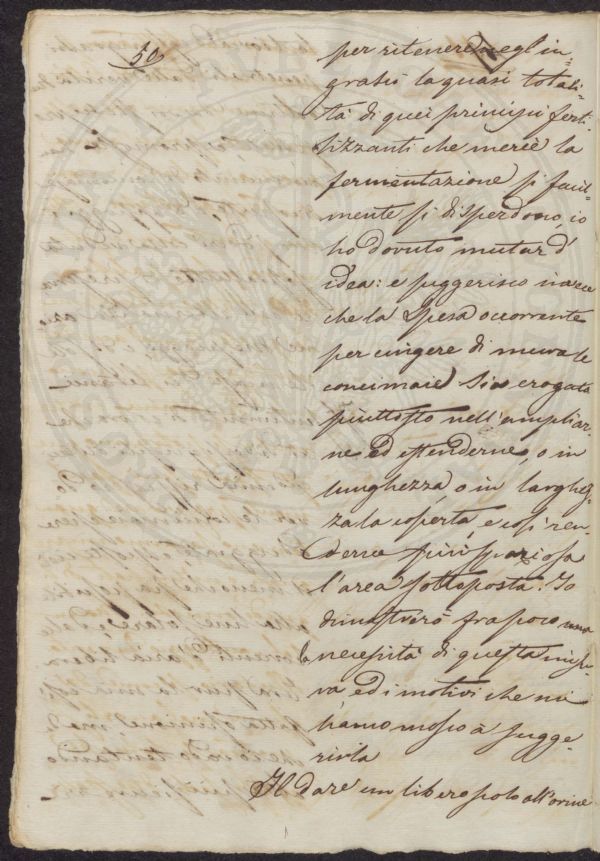 50
per ritenere negl'in-
grassi la quasi totali-
tà di quei principii ferti-
lizzanti che mercè la
fermentazione si facil-
mente si disperdono, io
ho dovuto mutar d'
idea: e suggerisco invece
che la Spesa occorrente
per cingere di mura le
concimaie Sia erogata
piuttosto nell'ampliar-
ne ed estenderne, o in
lunghezza, o in larghez-
za la coperta, e così ren-
derne più spaziosa
l'area sottoposta. Io
dimostrerò fra poco
la necessità di questa misu-
ra ed i motivi che mi
hanno mosso à sugge-
rirla
Il dare un libero scolo all'orine